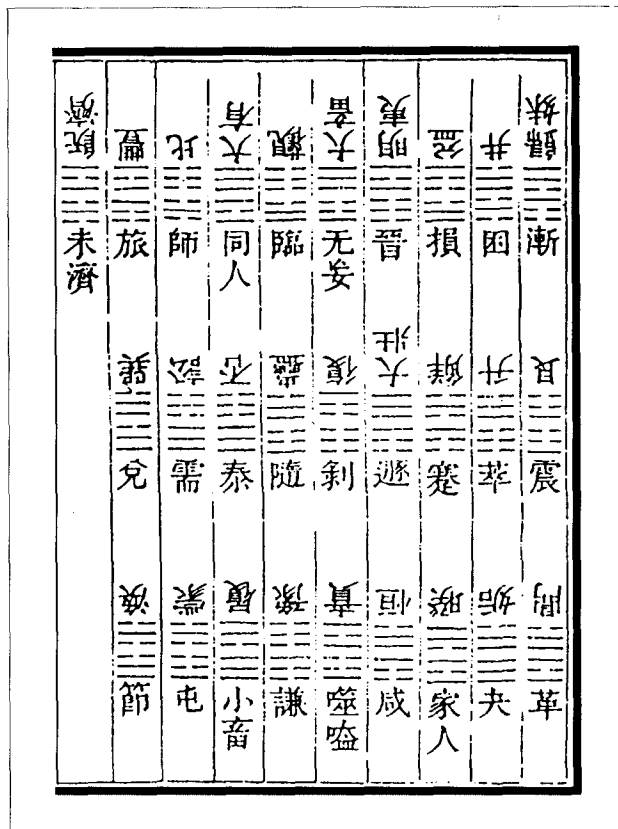 歸妹 漸 艮 震 鼎 革
井 困 升 萃 姤 夬
益 損 解 蹇 睽 家人
明夷 晉 大壯 遯 恒 咸
大畜 无妄 復 剝 賁 噬嗑
觀 臨 蠱 隨 豫 謙
大有 同人 否 泰 履 小畜
比 師 訟 需 蒙 屯
豐 旅 巽 兌 渙 節
既濟 未濟